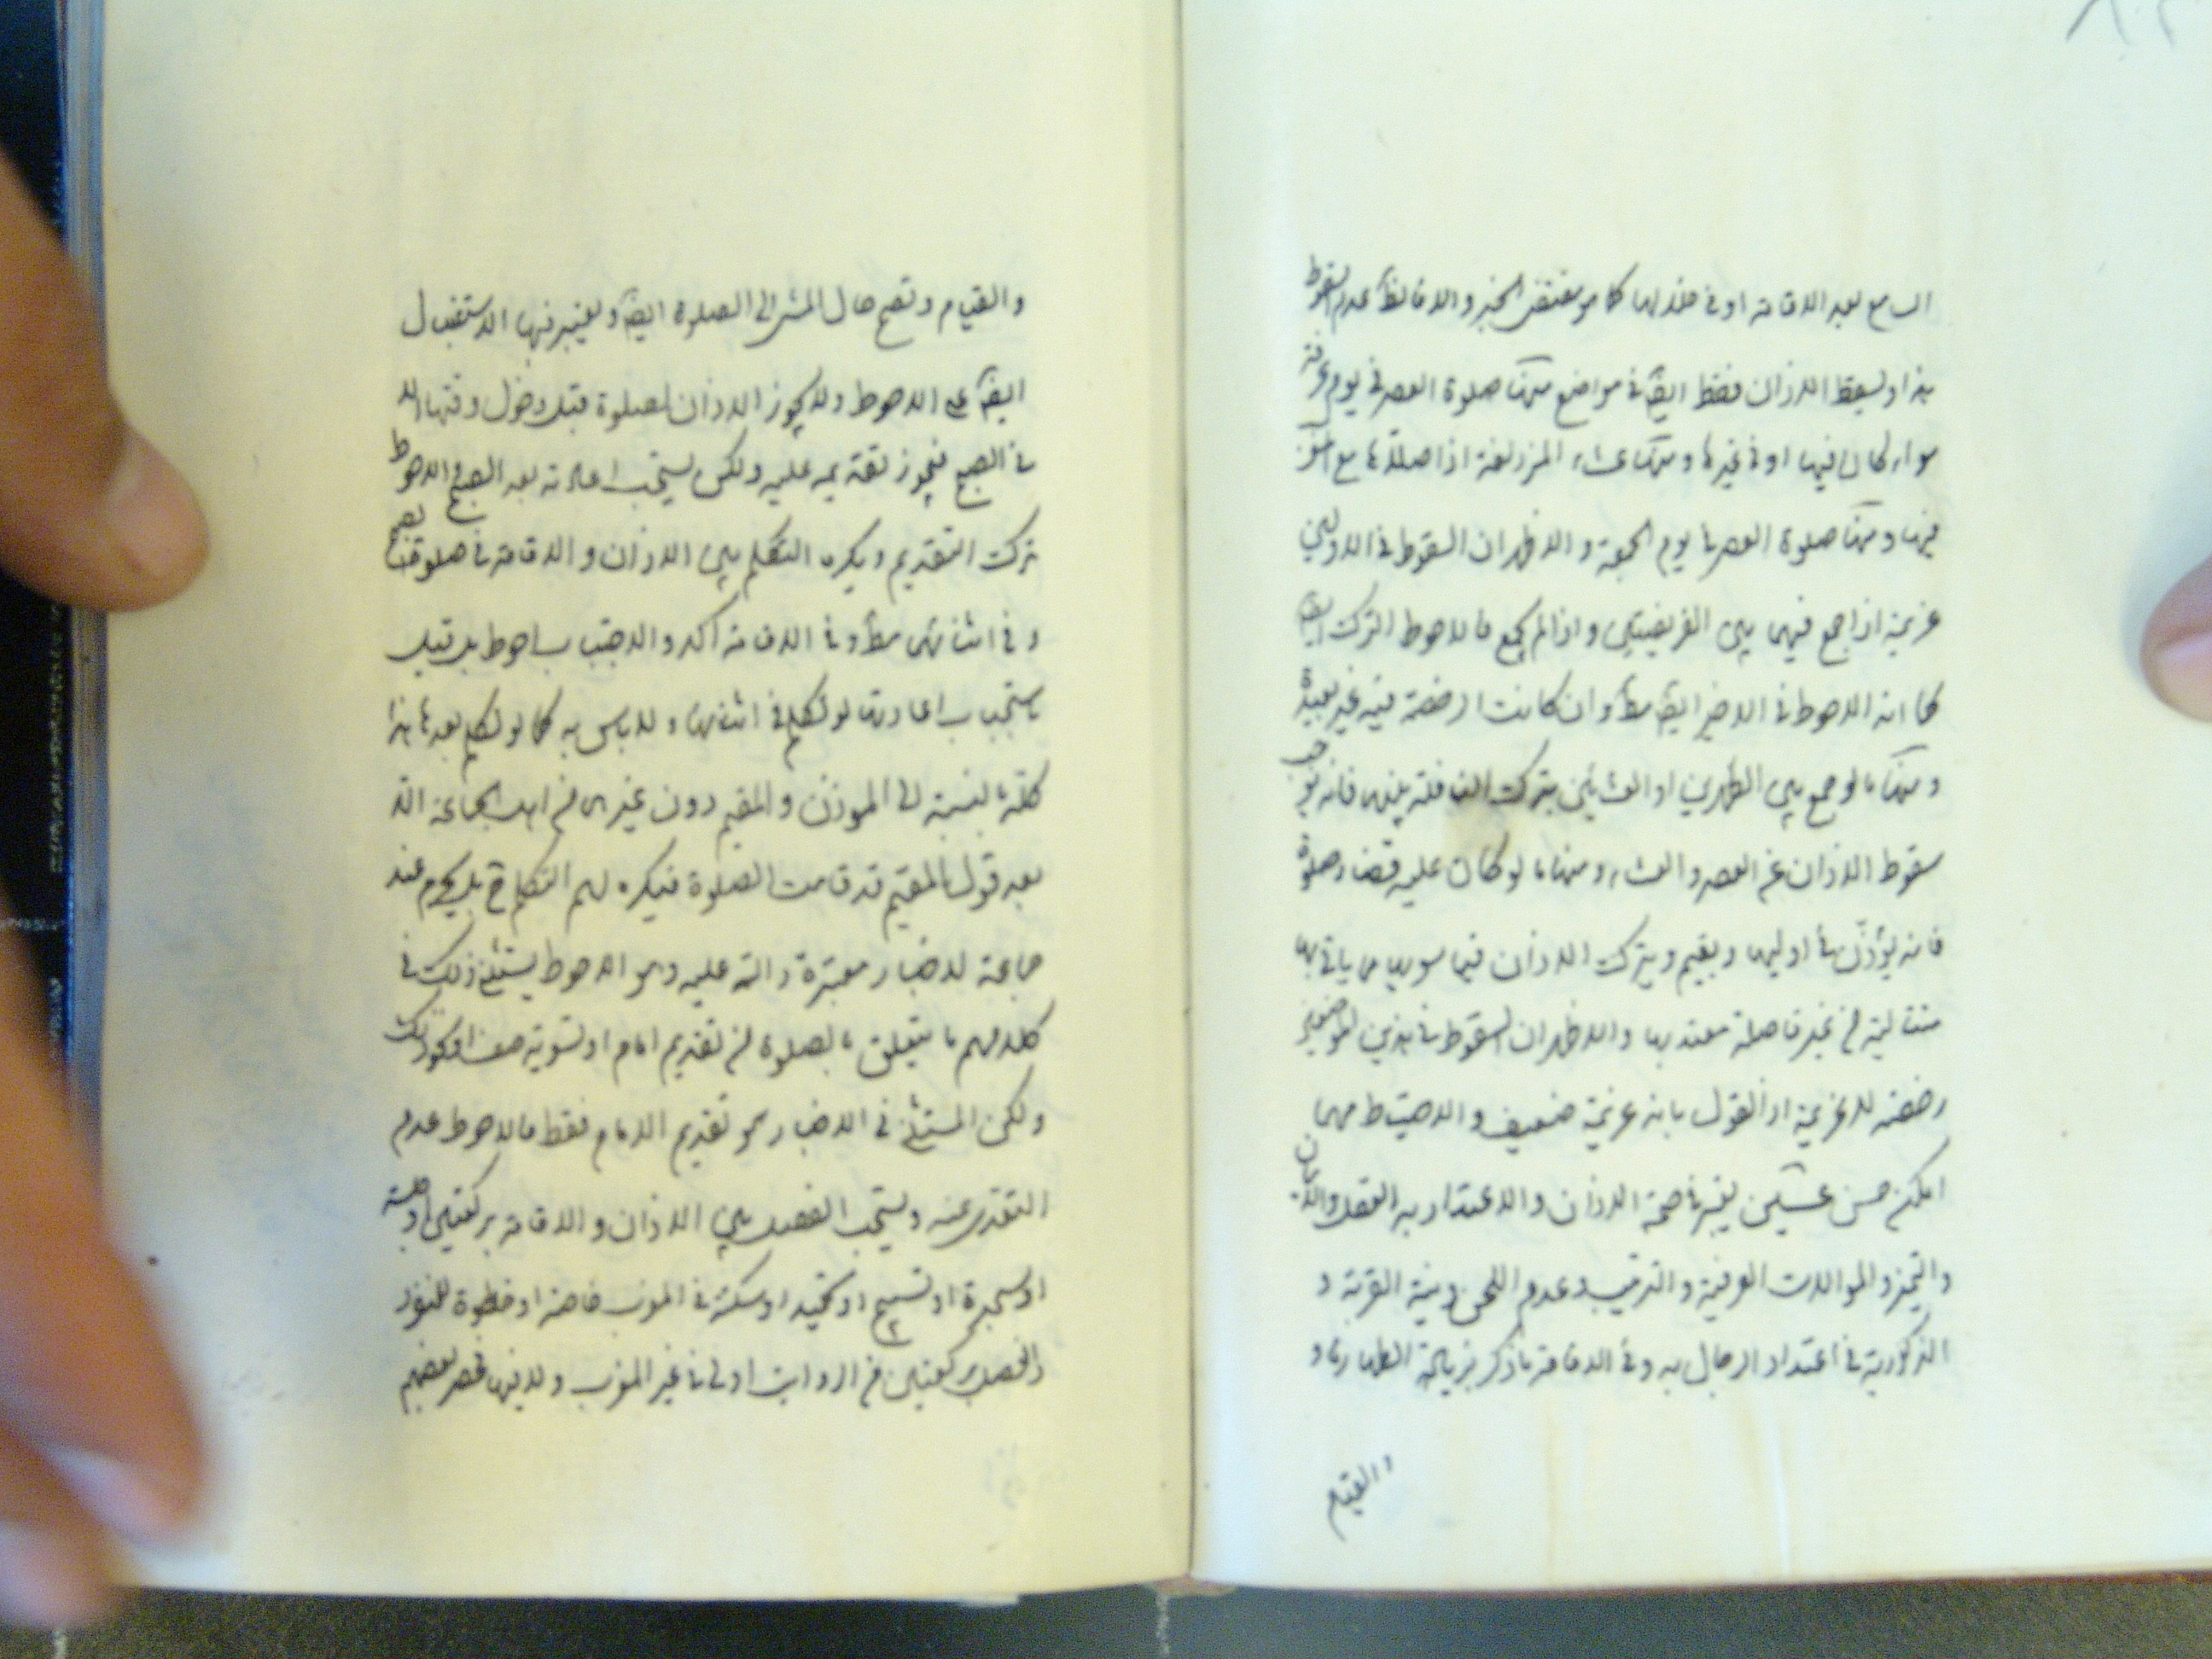 السامع بعد الاقامة او في خلالها كما هو مقتضى الخبر والا فالظ عدم السقوط
هذا ويسقط الاذان فقط ايضا في مواضع منها صلوة العصر في يوم عرفة
سواء كان فيها او في غيرها ومنها عشاء المزدلفة اذا صلاها مع المغرب
فيها ومنها صلوة العصر يوم الجمعة والاظهر ان السقوط في الاولين
عزيمة اذا جمع فيهما بين الفريضتين واذا لم يجمع فالاحوط الترك ايضا
كما انه الاحوط في الاخير ايضا مط وان كانت الرخصة فيه غير بعيدة
ومنها ما لو جمع بين الظهرين او العشائين بترك النافلة بينهما فانه
سقوط الاذان عن العصر والعشاء ومنها ما لو كان عليه قضاء صلوة
فانه يؤذن في اوليها ويقيم ويترك الاذان فيما سويها مما ياتي بها
متتالية من غير فاصلة معتد بها والاظهر ان السقوط في هذين الموضعين
رخصة لا عزيمة اذ القول بانه عزيمة ضعيف والاحتياط مهما
امكن حسن عشين يعتبر في صحة الاذان والاعتداد به العقل والايمان
والتميز والموالات العرفية والترتيب وعدم اللحن ونية القربة و
الذكورية في اعتداد الرجال به وفي الاقامة ما ذكر بزيادة الطهارة و
والقيام
والقيام وتصح حال المشي الى الصلوة ايضا ويعتبر فيها الاستقبال
ايضا على الاحوط ولا يجوز الاذان لصلوة قبل دخول وقتها الا
في الصبح فيجوز تقديمه عليه ولكن يستحب اعادته بعد الصبح والاحوط
ترك التقديم ويكره التكلم بين الاذان والاقامة في صلوة الصبح
وفي اثنائهما مط وفي الاقامة آكد والاجتناب احوط بل قيل
باستحباب اعادتها لو تكلم في اثنائها ولا باس به كما لو تكلم بعدها هذا
كله بالنسبة الى المؤذن والمقيم دون غيرهما من اهل الجماعة الا
بعد قول المقيم قد قامت الصلوة فيكره لهم التكلم ح بل يحرم عند
جماعة لاخبار معتبرة دالة عليه وهو الاحوط يستثنى ذلك في
كلامهم ما يتعلق بالصلوة من تقديم امام او تسوية صف او نحو ذلك
ولكن المستثنى في الاخبار هو تقديم الامام فقط فالاحوط عدم
التعدي عنه ويستحب الفصل بين الاذان والاقامة بركعتين او جلسة
او سجدة او تسبيح او تحميد او سكتة في المغرب خاصة او خطوة للمنفرد
والفصل بركعتين من الرواتب اولى في غير المغرب ولا فيها خصر بعضهم